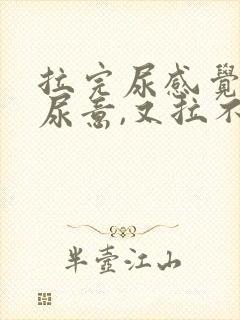 拉完尿感覺
尿意,又拉不
半壺江山